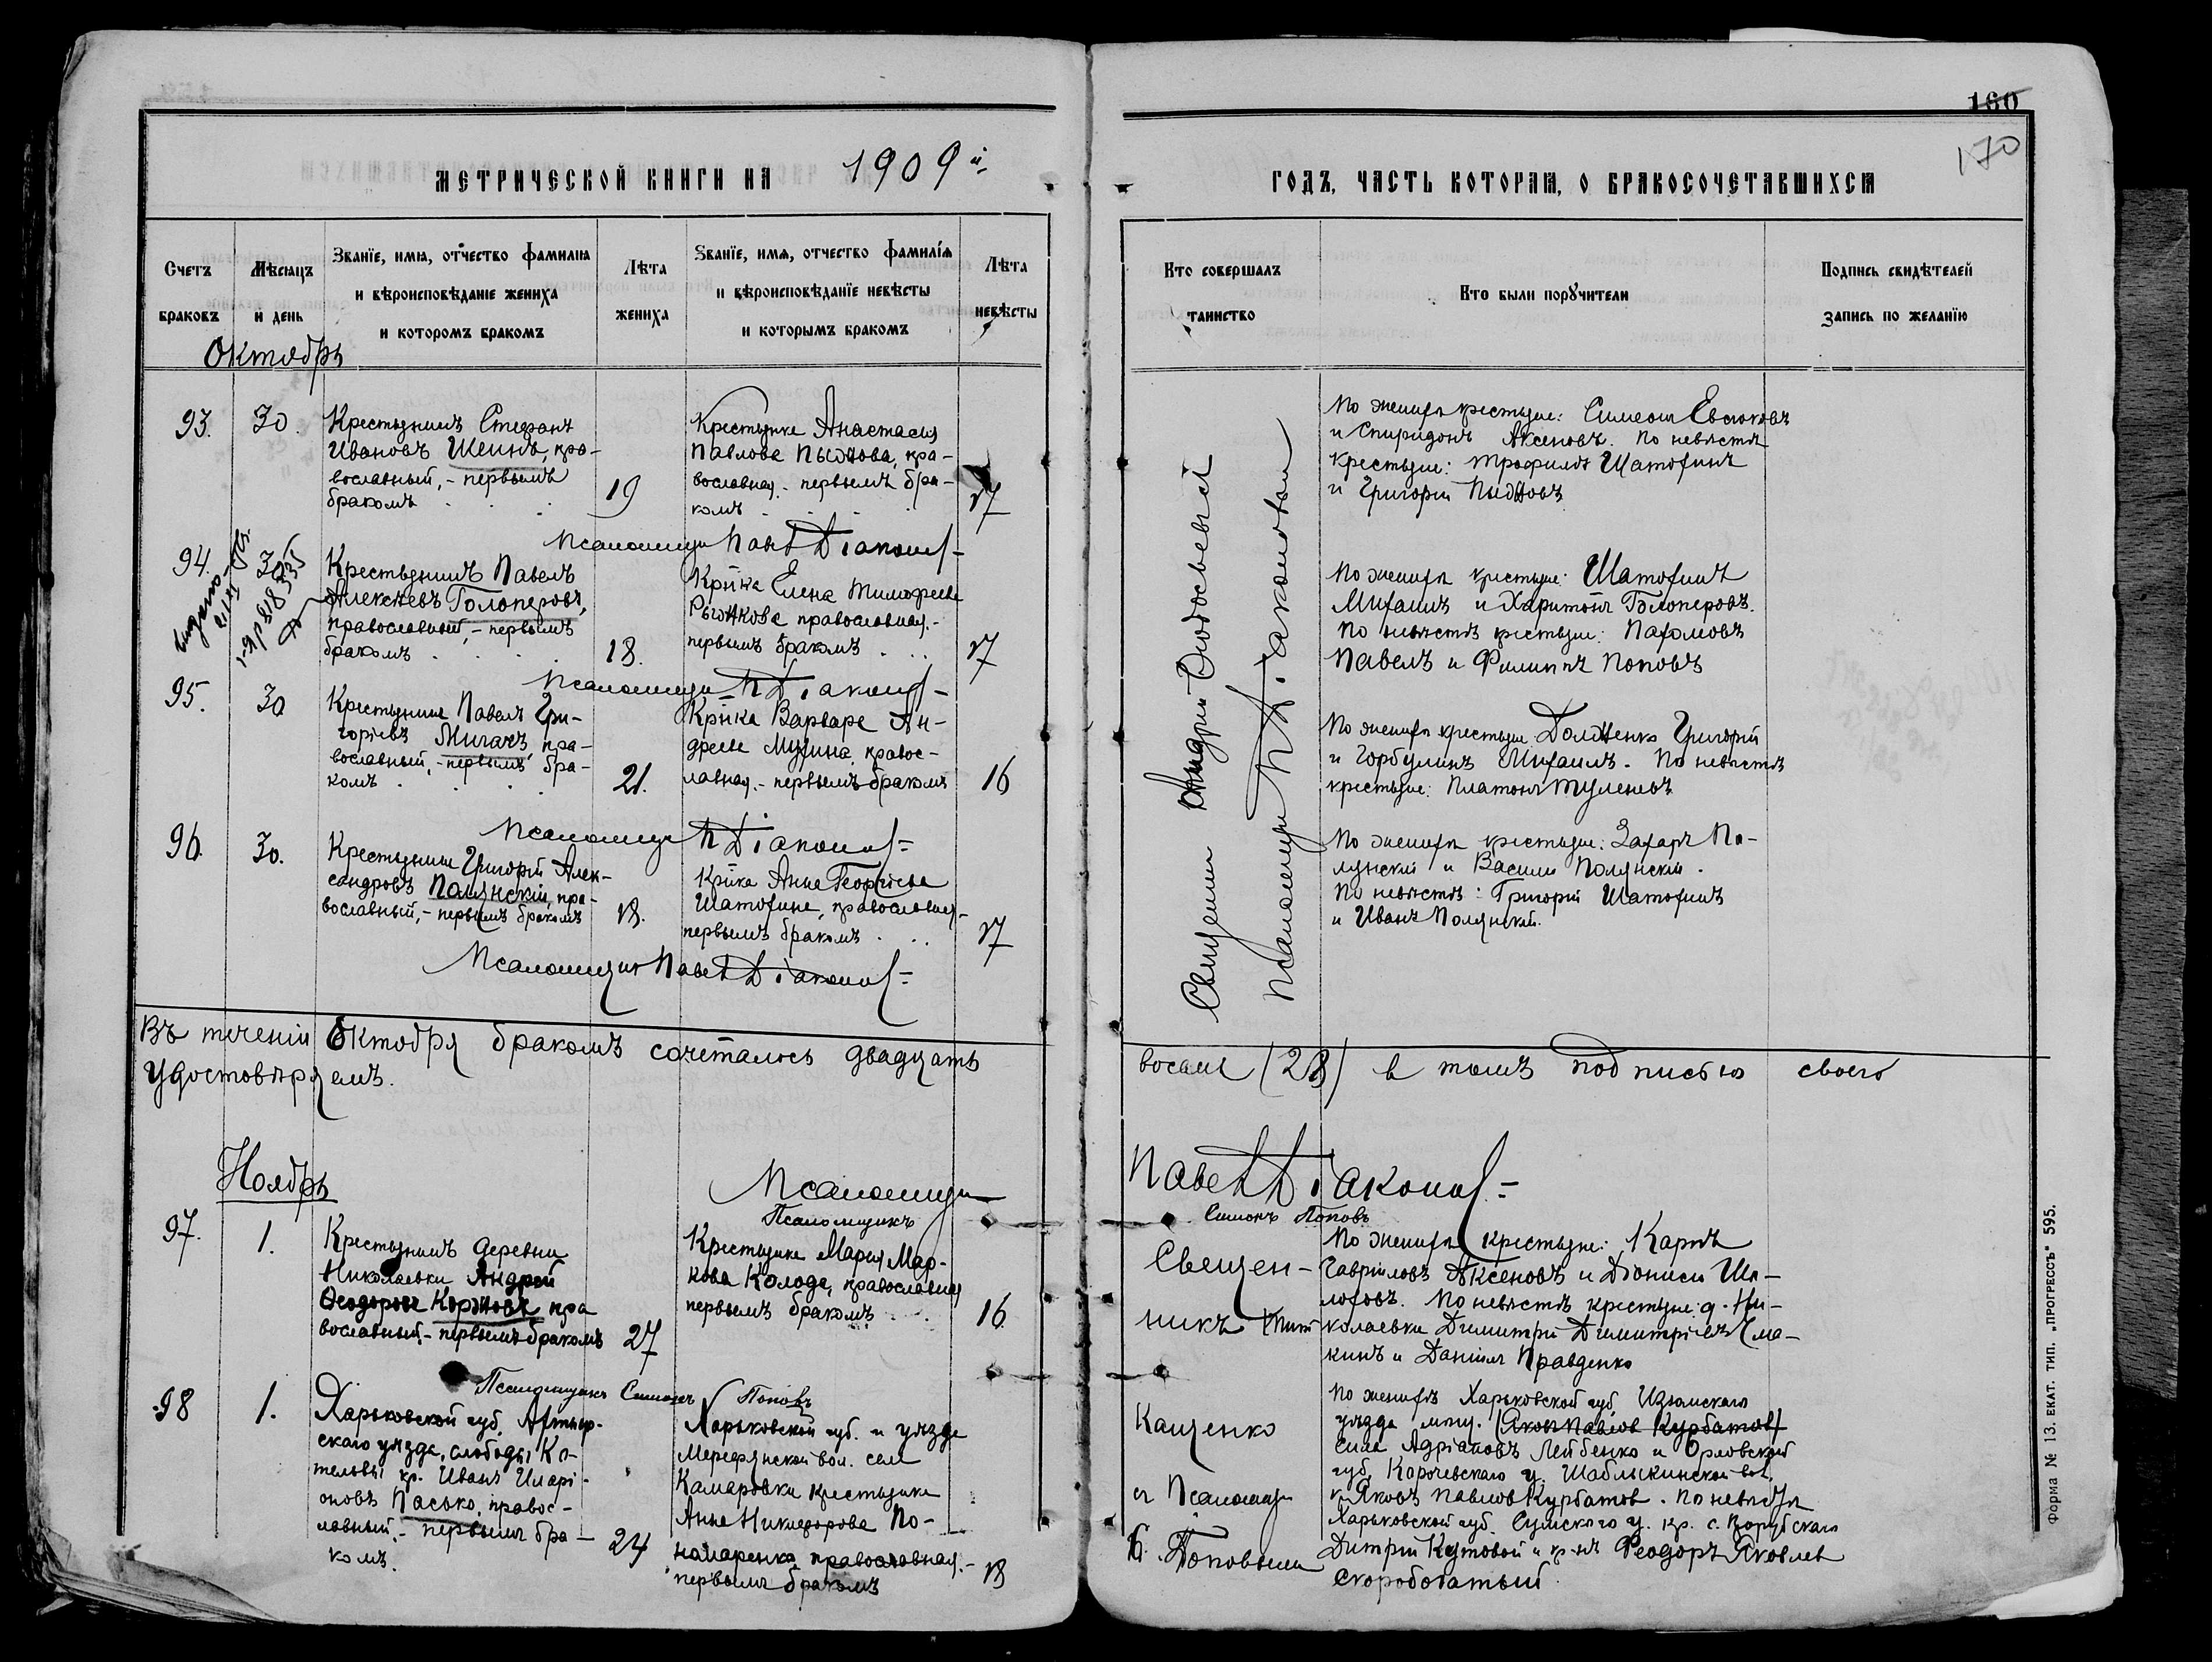 160
170
МЕТРИЧЕСКОЙ КНИГИ НА 1909й
ГОДЪ, ЧАСТЬ КОТОРАЯ, О БРАКОСОЧЕТАВШИХСЯ
Счетъ браковъ
Мѣсяцъ и день
Званїе, имя, отчество фамилія
и вѣроисповѣданіе жениха
и которомъ бракомъ
Лѣта жениха
Званїе, имя, отчество фамилія
и вѣроисповѣданїе невѣсты
и которымъ бракомъ
Лѣта невѣсты
Кто совершалъ таинство
Кто были поручители
Подпись свидѣтелей
запись по желанію
Октябрь
93. 30.
Крестьянинъ Стефанъ
Ивановъ Шеинъ, пра-
вославный, - первымъ
бракомъ
19
Крестьянка Анастасія
Павлова Пыжова, пра-
вославная. - первымъ бра-
комъ
17
По женихѣ крестьяне: Симеонъ Евсюковъ
и Спиридонъ Аксеновъ. По невѣстѣ
крестьяне: Трофимъ Шатохинъ
и Григорій Пыжовъ
Псаломщикъ Павелъ Діаконовъ
94. 30
Крестьянинъ Павелъ
Алексѣевъ Голоперовъ,
православный, - первымъ
бракомъ
18.
Кр-нка Елена Тимофеева
Рыжкова православная. -
первымъ бракомъ
17
По женихѣ крестьяне: Шатохинъ
Михаилъ и Харитонъ Голоперовъ.
По невѣстѣ крестьяне: Пахомовъ
Павелъ и Филиппъ Поповъ
Псаломщикъ П Діаконовъ
95. 30
Крестьянинъ Павелъ Гри-
горіевъ Мигачъ, пра-
вославный, - первымъ бра-
комъ
21.
Кр-нка Варвара Ан-
дреева Музина, правос-
лавная. - первымъ бракомъ
16
По женихѣ крестьяне Долженко Григорій
и Горбулинъ Михаилъ. По невѣстѣ
крестьяне: Платонъ Туленевъ
Псаломщикъ П Діаконовъ
96. 30.
Крестьянинъ Григорій Алек-
сандровъ Полянскій, пра-
вославный, - первымъ бракомъ
18.
Кр-нка Анна Георгіева
Шатохина, православная -
первымъ бракомъ
17
По женихѣ крестьяне: Захаръ По-
лянскій и Василій Полянскій.
По невѣстѣ: Григорій Шатохинъ
и Иванъ Полянскій.
Псаломщикъ Павелъ Діаконовъ
Священникъ Андрей Ѳиодосьевскій
Псаломщикъ П. Діаконовъ
Въ теченіи Октября бракомъ сочеталось двадцать восемь (28) в томъ подписью своею
Удостовѣряемъ.
Псаломщикъ Павелъ Діаконовъ
Псаломщикъ Симонъ Поповъ
Ноябрь
97. 1.
Крестьянинъ деревни
Николаевки Андрей
Ѳеодоровъ Коржовъ, пра
вославный - первымъ бракомъ
27
Крестьянка Марія Мар-
кова Колода, православная
первымъ бракомъ
16
Священ-
никъ Тит
По женихѣ крестьяне: Карпъ
Гавріиловъ Аксеновъ и Діонисій Шо-
лоховъ. По невѣстѣ крестьяне д. Ни-
колаевки Димитрій Димитріевъ Чма-
кинъ и Даніилъ Правденко
Псаломщикъ Симонъ Поповъ
98 1.
Харьковской губ. Ахтыр-
скаго уѣзда, слободы Ко-
тельвы кр. Иванъ Иларі-
оновъ Пасько, правос-
лавный. - первымъ бра-
комъ.
24
Харьковской губ. и уѣзда
Мерефянской вол. села
Камаровки крестьянка
Анна Никифорова По-
номаренко, православная. -
первымъ бракомъ
18
Кащенко
съ Псаломщик
Поповымъ
По женихѣ Харьковской губ. Изюмскаго
уѣзда мѣщ. (Яковъ Павлов Курбатов)
Сила Адріановъ Лейбенко и Орловской
губ. Карачевскаго у. Шаблыкинской вол.
к. Яковъ Павлов Курбатов. По невѣстѣ
Харьковской губ. Сумского у. кр. с.
Дитрій Кутовой и кр-нъ Ѳеодоръ Яковлев
Скоробогатый.
Форма № 13. ЕКАТ. ТИП. „ПРОГРЕССЪ" 595.